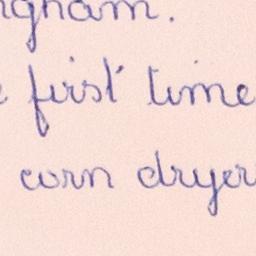 ngham.
first time
corn dryer